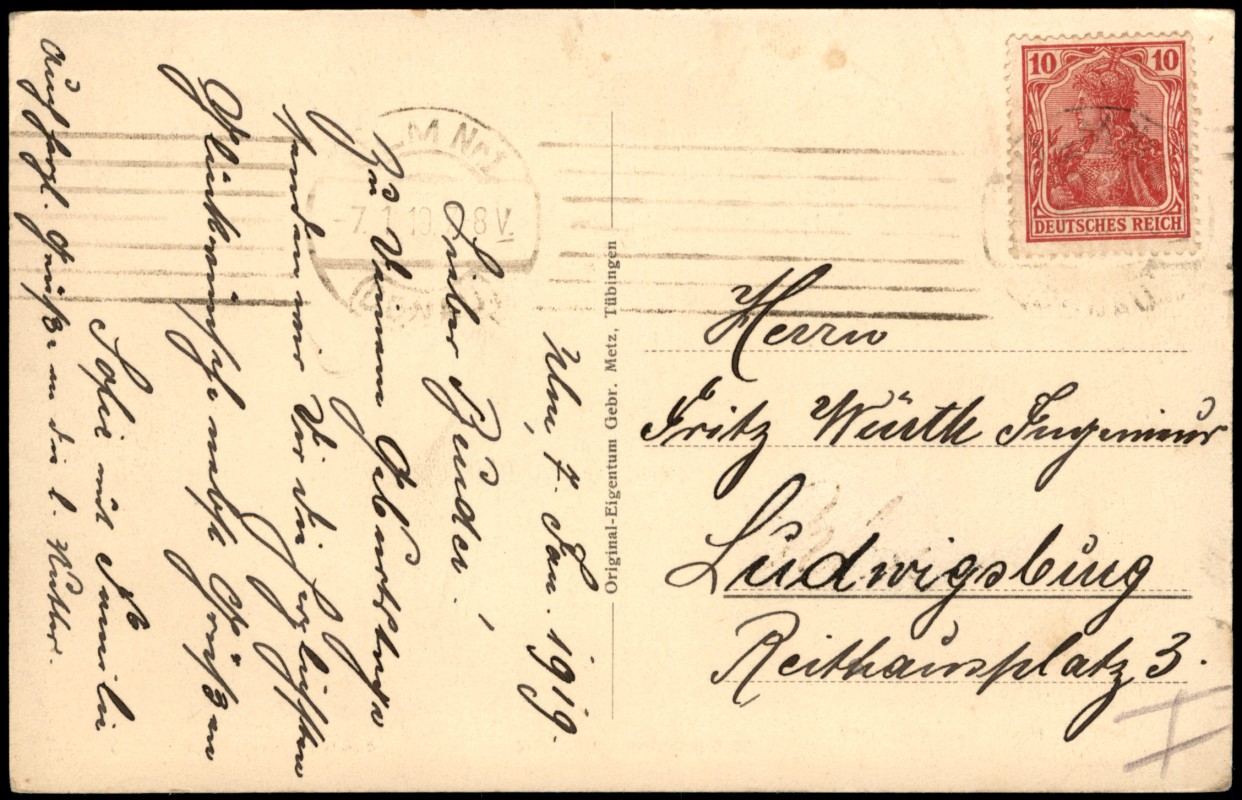 Ulm, 7. Jan. 1919.
Lieber Bruder!
Zu Deinem Geburtstage
senden wir Dir die herzlichsten
Glückwünsche nebst Grüßen
Sofie mit Familie
Auch herzl. Grüße an die l. Mutter.
Original-Eigentum Gebr. Metz, Tübingen
10 10
DEUTSCHES REICH
ULM
-7.1.19. 8V.
(DONAU)
Herrn
Fritz Würth Ingenieur
Ludwigsburg
Reithausplatz 3.